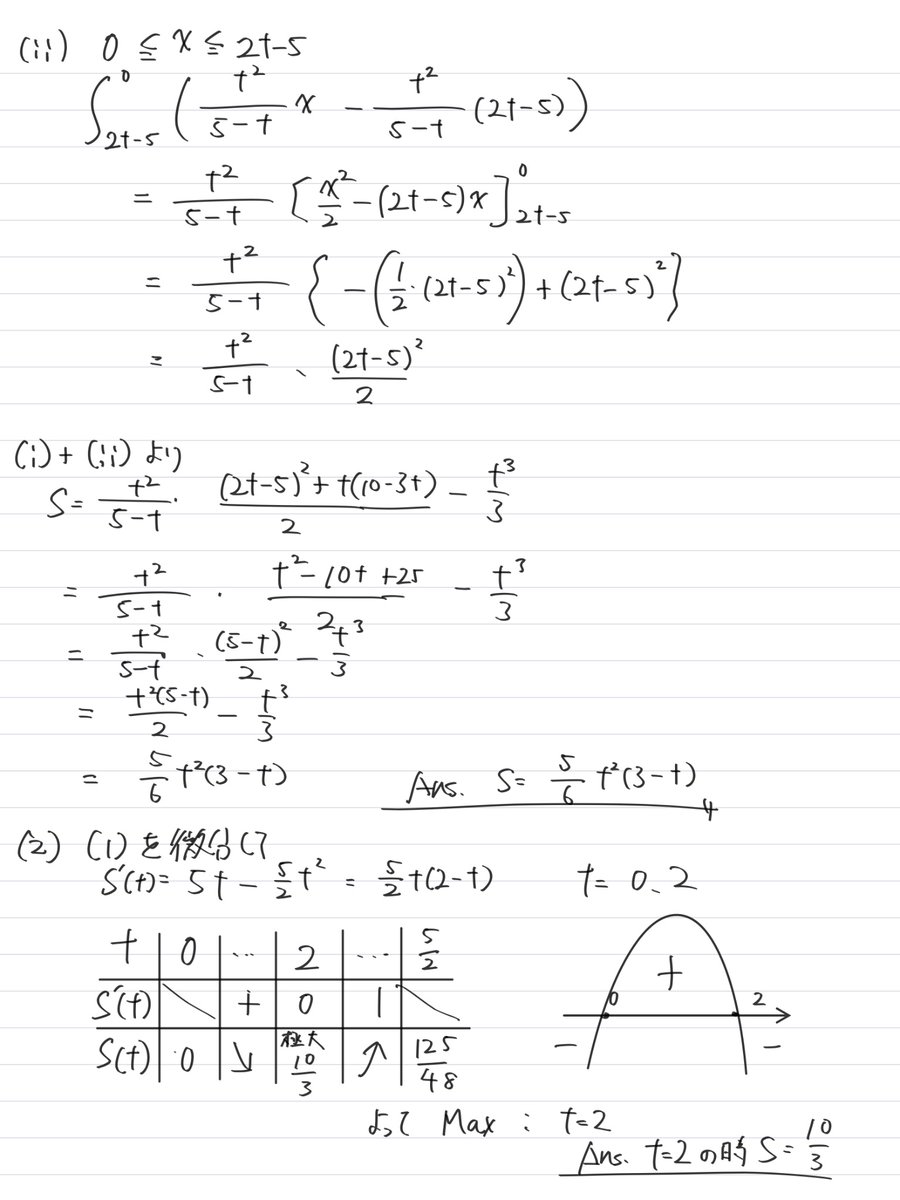 (ii) 0 ≦ x ≦ 2t-5
∫_{2t-5}^{0} ( t²/(5-t) x - t²/(5-t) (2t-5) )
= t²/(5-t) [ x²/2 - (2t-5)x ]_{2t-5}^{0}
= t²/(5-t) { -( 1/2・(2t-5)² ) + (2t-5)² }
= t²/(5-t) 、 (2t-5)²/2
(i) + (ii) より
S = t²/(5-t)・ ((2t-5)² + t(10-3t))/2 - t³/3
= t²/(5-t) ・ (t²-10t+25)/2 - t³/3
= t²/(5-t) ・ (5-t)²/2 - t³/3
= t²(5-t)/2 - t³/3
= 5/6 t²(3-t) Ans. S = 5/6 t²(3-t)
(2) (1)を微分して
S'(t) = 5t - 5/2 t² = 5/2 t(2-t) t = 0、2
t | 0 | … | 2 | … | 5/2
S'(t) | \ | + | 0 | | | \
S(t) | 0 | ↘ | 極大 10/3 | ↗ | 125/48
+
0 2
- -
よって Max : t=2
Ans. t=2 の時 S = 10/3